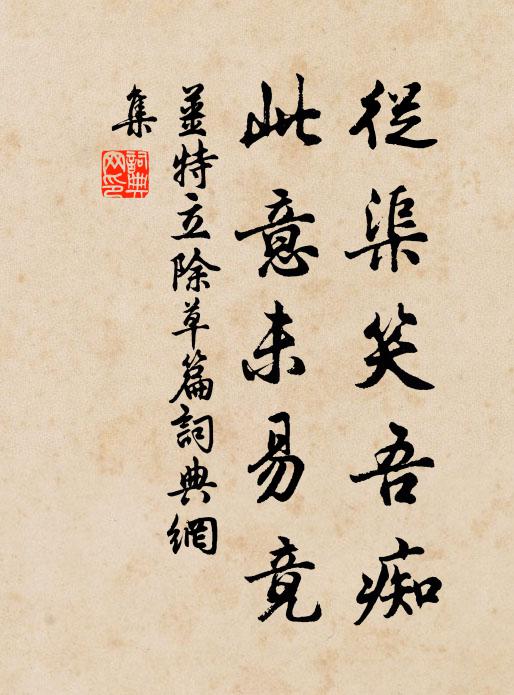 從渠笑吾痴
此意未易竟
姜特立除草篇詞典網
集
詞典
网印